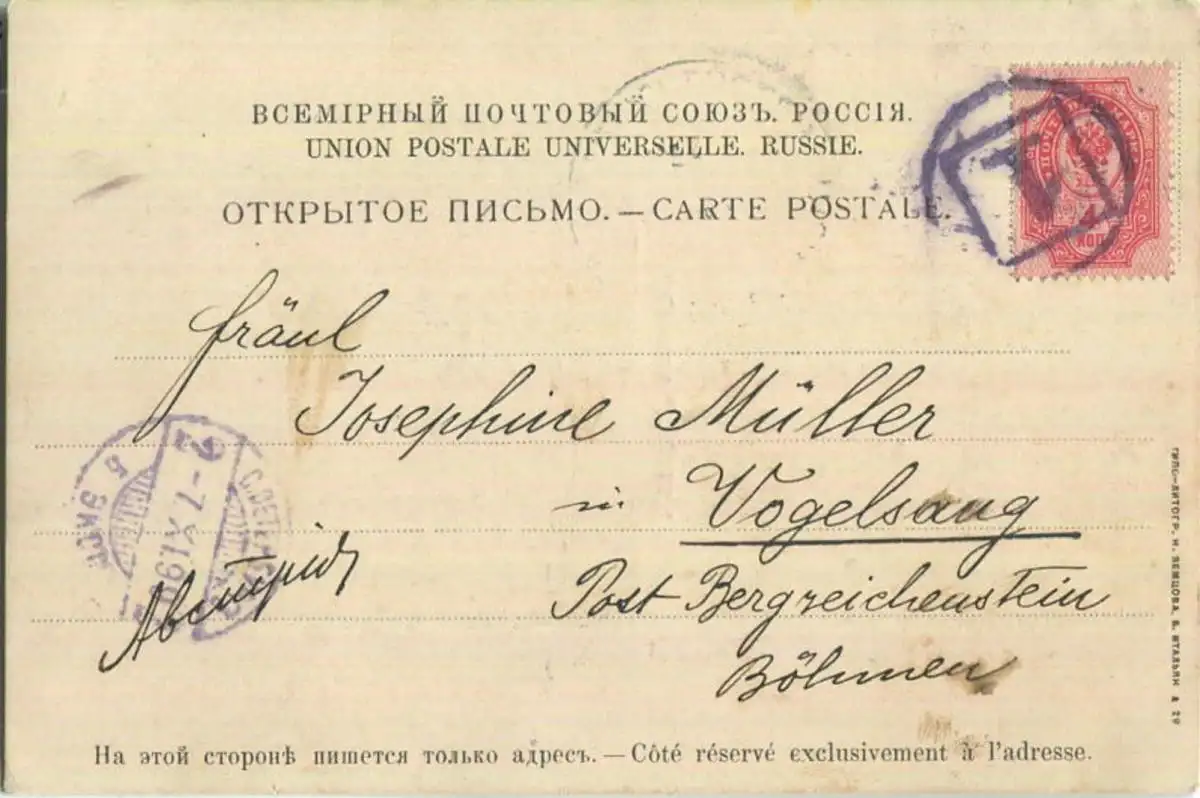 ВСЕМІРНЫЙ ПОЧТОВЫЙ СОЮЗЪ. РОССІЯ.
UNION POSTALE UNIVERSELLE. RUSSIE.
ОТКРЫТОЕ ПИСЬМО.—CARTE POSTALE.
4
КОП
Fräul
Josephine Müller
in Vogelsang
Post Bergreichenstein
Böhmen
Австрія
На этой сторонѣ пишется только адресъ.—Côté réservé exclusivement à l'adresse.